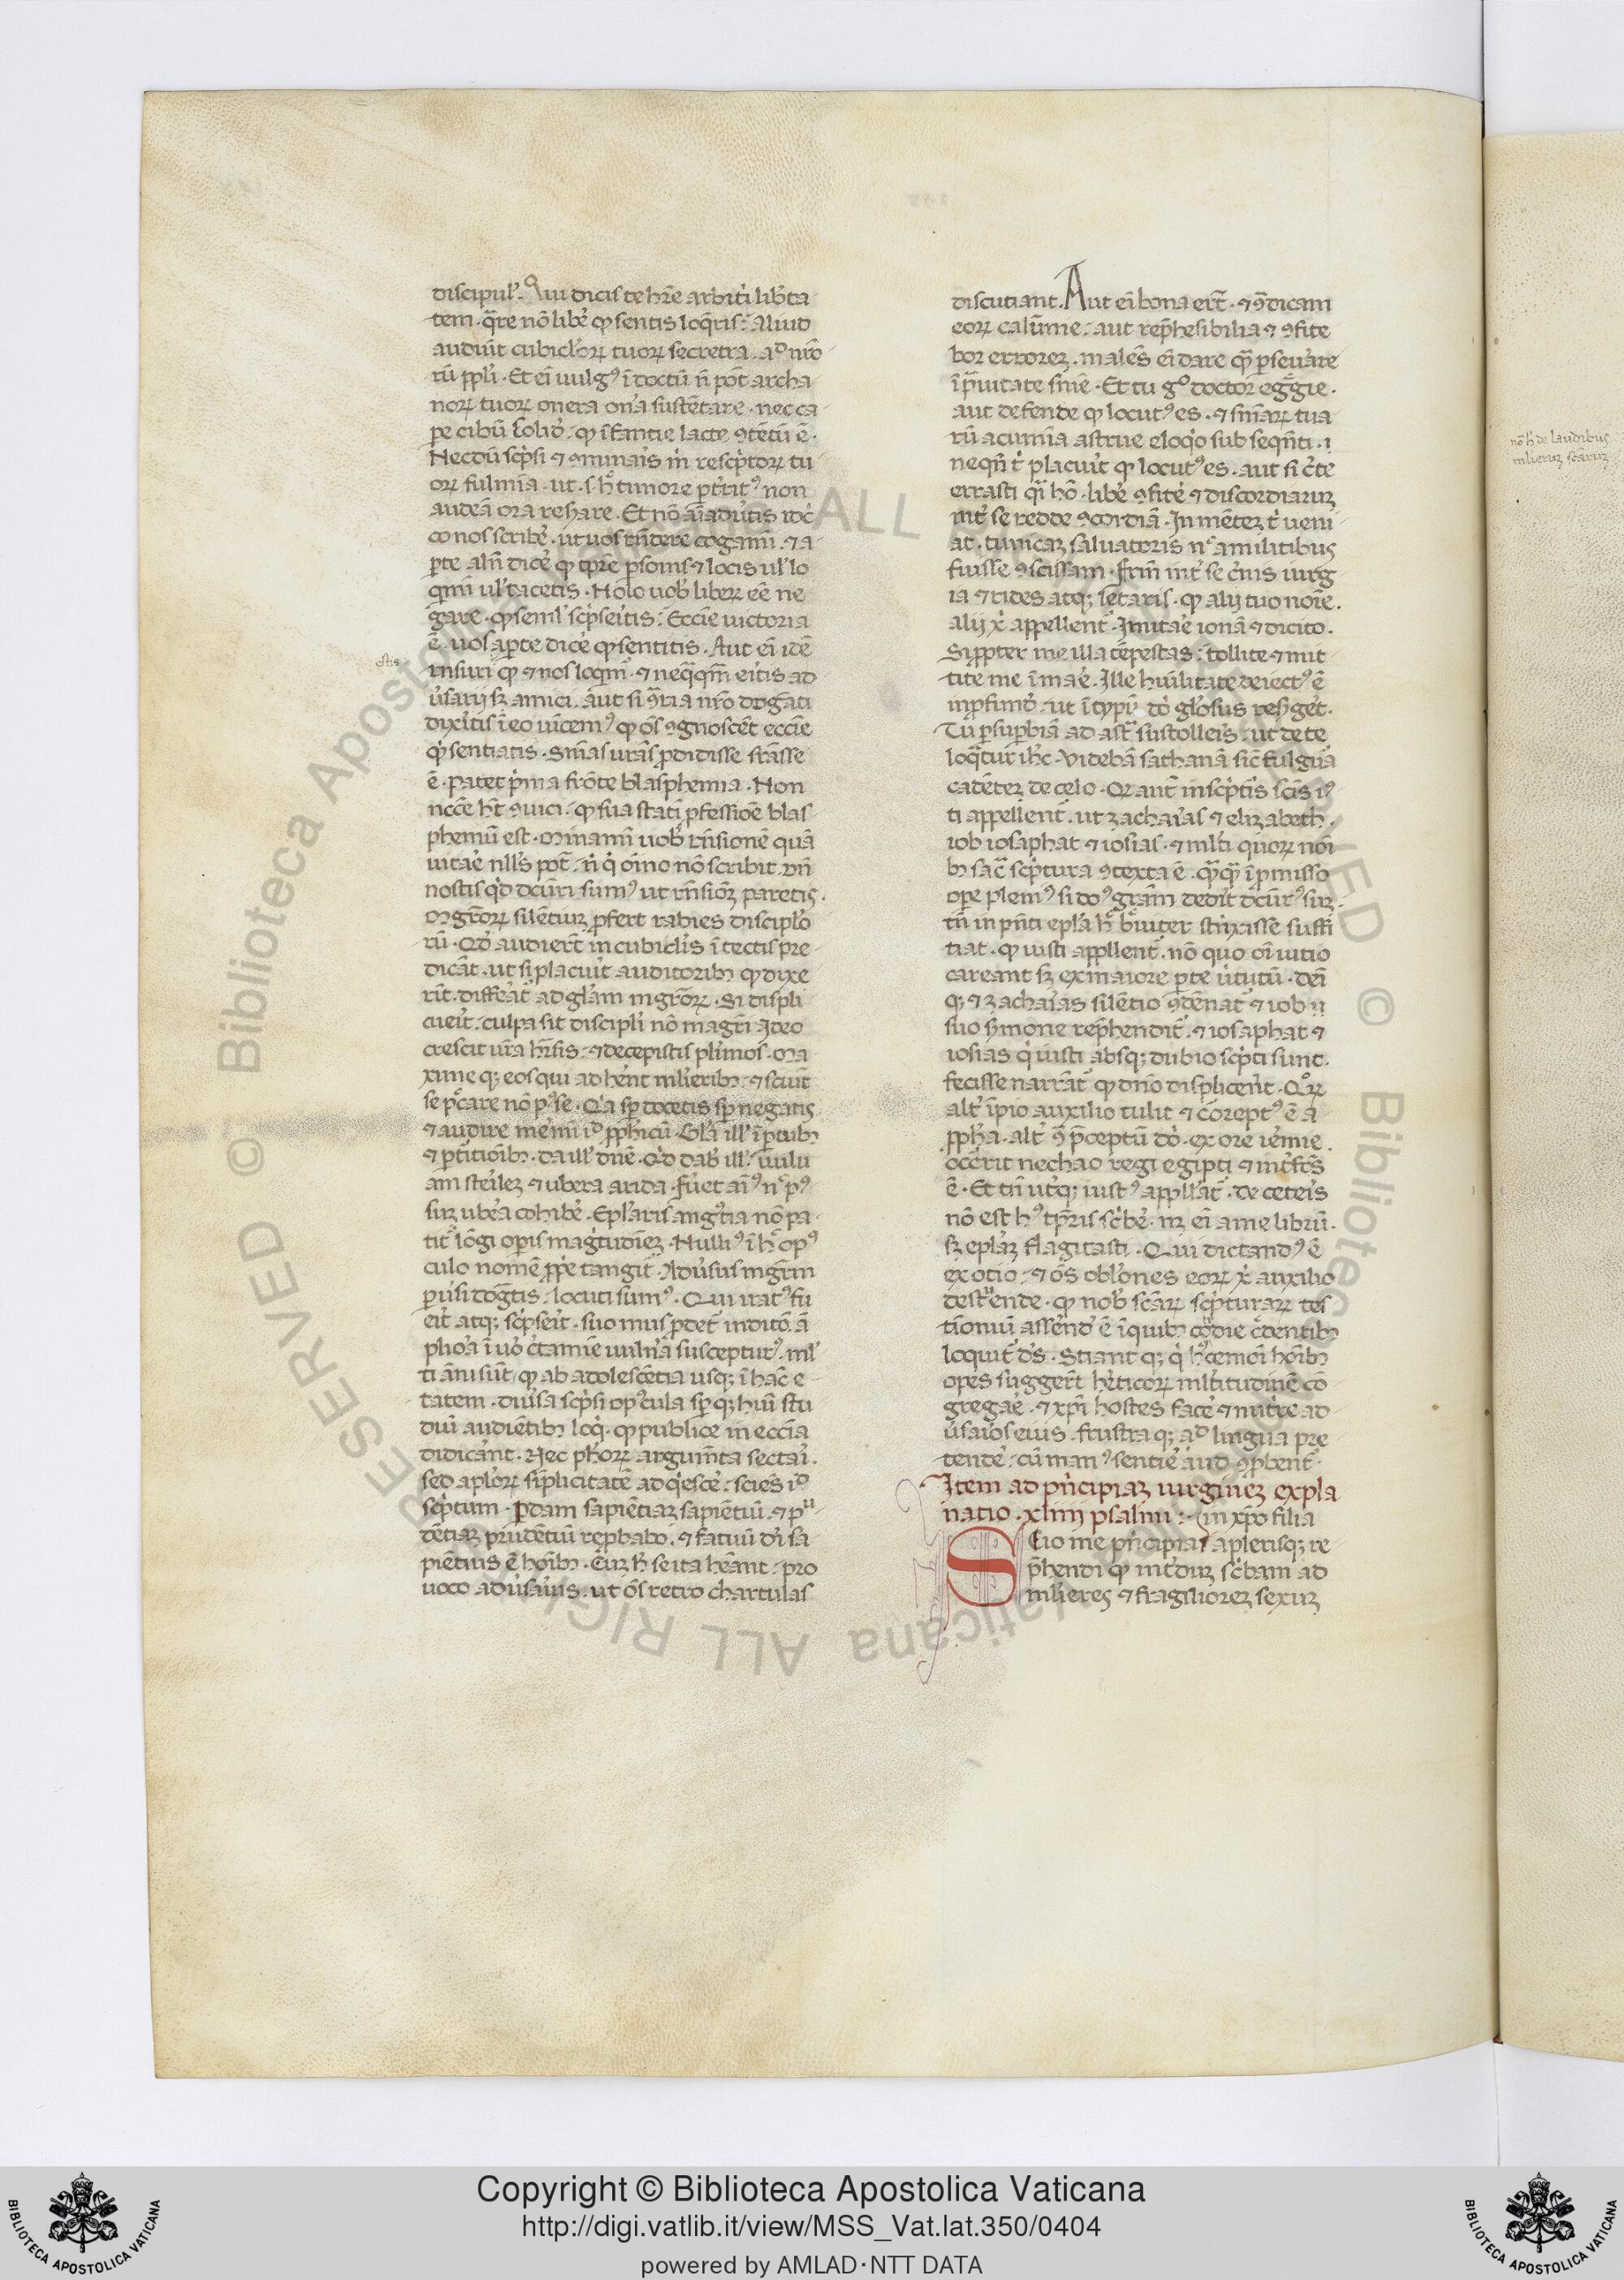 discipul᷒. Qui dicis te hr̄e arbitͥi lib̓ta
tem. qͣre nō libe᷒ qͩ sentis loqͣris: Aliud
audiūt cubicl̓oꝝ tuoꝝ secretra. aͩ nr̄o
rū ppl̓i. Et eī uulgꝰ ī doctū n̄ pōt archa
noꝝ tuoꝝ onera on̓a sustētare. nec ca
pe cibū solid̓. qͩ īfantie lacte ꝯtētū ē.
Necdū scͥpsi ⁊ ꝯminaīs m̓ rescͥptoꝝ tu
oꝝ fulmīa. ut. s hͨ timore ꝑt̓ritꝰ non
audeā ora res̓are. Et nō aīadu̓tis idc̓
co nos scribe᷒. ut uos rn̄dere cogamī. ⁊ a
ꝑte aln̄ dice᷒ qͩ tp̄re ꝑsonis ⁊ locis ul̓ lo
qmī ul̓ tacetis. Nolo uob̓ libeꝝ eē ne
gare. qͩ seml̓ scͥpseītis: Eccīe uictoria
ē. uos aꝑte dice᷒ qͩ sentitis. Aut eī idē
rn̄suri qͩ ⁊ nos loqmͬ. ⁊ neqͣqͣm eͥtis ad
u̓sarij sꝫ amici. aut si ꝯͣria nr̄o dogͣti
dixͤitis ī eo uīcemꝰ qͩ oēs ꝯgnoscēt eccīe
qͥ sentiatis. Sn̄ias ur̄as ꝓdidisse suꝑasse
ē. patet pͥma frōte blasphemia. Non
ncc̄e ht̄ ꝯuici. qͩ sua statī ꝓfessiōe blas
phemū est. Minamī uob̓ rn̄sionē quā
uitae᷒ nll̓s pōt. n̄ qͥ oīno nō scribit. vn̄
nostis qͥd dc̄uri sumꝰ ut rn̄sioēꝫ paretis.
Mgr̄oꝝ silētiuꝫ ꝓfert rabies discipl̓o
rū. Qͩ audierēt in cubiclis ī tectis pre
dicāt. ut si placuīt auditoribꝫ qͩ dixe
rīt. diffēat̓ ad gl̓am mgr̄oꝝ. Si displi
cueīt. culpa sit discipl̓i nō magr̄i. Ideo
crescit ur̄a hr̄esis. ⁊ decepistis pl̓imos. Ma
xime qꝫ eos qui ad hēnt ml̓ieribꝫ. ⁊ sciūt
se pͨcare nō pꝰse. Qͣa sꝑ docetis sꝑ negatis
⁊ audire me᷒mī iͩ ꝓphicū. Da ill̓ īꝑtubꝫ
⁊ ꝑtitiōibꝫ. da ill̓ dn̄e. Qͥd dab̓ ill̓. uulu
am steīleꝫ ⁊ ubera arida. Fu̓et aīꝰ nͨ pꝰ
suꝫ ube᷒a cohibe᷒. Epl̓aris angꝰtia nō pa
tit̓ lōgi oꝑis magͥtudīeꝫ. Nulliꝰ ī hͨ opꝰ
culo nomē ꝓpͥe tangit̓. Adu̓sus mgr̄m
ꝑu̓si dogͣtis. locuti sumꝰ. Qui iratꝰ fu
eīt atqꝫ scͥpseīt. suo mus ꝓdet̓ inditō. ā
phōa ī uo̓ c̓tamīe uuln̓a susceptur̓ꝰ. ml̓
ti āni sūt. qͩ ab adolescētia usqꝫ ī hāc e
tatem. diu̓sa scͥpsi opꝰcula sꝑ qꝫ huī stu
duī audiētibꝫ loqͥ. qͩ publice in eccīa
didicāt. Nec ph̓oꝝ argumͭta sectari.
sed apl̓oꝝ sīplicitatē adqͥesce᷒. scies iͩ
scͥptum. ꝑdam sapiētiaꝫ sapiētiū. ⁊ pͬu
dētiaꝫ prudētiū reꝓbabo. ⁊ fatuū dī sa
piētius ē hoībꝫ. Cūꝫ h̓ se ita hēant. pro
uoco adu̓saīus. ut oēs retro chartulas
discutiant. Aut eī bona er̄t. ⁊ ꝯͣdicam
eoꝝ calūme. aut rep̄hēsibilia ⁊ ꝯfite
bor erroreꝫ. malēs eī dare qͣꝫ ꝑseuͤare
ī pͣuitate sn̄ie. Et tu gͦ doctor egͤgie.
aut defende qͩ locutꝰ es. ⁊ sn̄iaꝝ tua
rū acumīa astrue eloqͥo sub seqn̄ti. i
neqn̄ tͥ placuīt qͩ locutꝰ es. aut si c̓te
errasti qͣi hō. libe᷒ ꝯfite᷒ ⁊ discordiaruꝫ
int̓ se redde ꝯcordiā. In mēteꝫ tͥ ueni
at. tunicaꝫ saluatoris nͨ a militibus
fuisse ꝯscissam. Frm̄ int̓ se cͤnis iurg
ia ⁊ rides atqꝫ letaris. qͩ alij tuo noīe.
alij xͥ appellent̓. Imitae᷒ ionā ⁊ dicito.
Si ꝓpter me illa tēpestas. tollite ⁊ mit
tite me ī mae᷒. Ille huīlitate deiectꝰ ē
in ꝓfundͦ. ut ī typū dͦ gl̓osus res̓get.
Tu ꝑ suꝑbiā ad astͣ sustolleīs. ut de te
loqͣtur ih̄c. Videbā sathanā sīc fulgua᷒
cadēteꝫ de celo. Qꝛ aut̄ in scͥptīs scīs iꝰ
ti appellent̓. ut zachaīas ⁊ elizabeth.
iob iosaphat ⁊ iosias. ⁊ ml̓ti quoꝝ noī
bꝫ sacͣ scͥptura ꝯtexta ē. qͣqͣ ī ꝓmisso
oꝑe plenͥꝰ si dōꝰ grāmͭ dedͤīt dc̄urꝰ suꝫ.
tn̄ in pn̄ti epl̓a hͨ bͤuiter stͥxisse suffi
tiat. qͩ iusti appllent̓. nō quo oī uitio
careant sꝫ ex maiore ꝑte u̓tutū. dēi
qꝫ ⁊ zachaīas silētio ꝯdēnat̓ ⁊ iob ī
suo s̓mone rep̄hendit̓. ⁊ iosaphat ⁊
iosias qͥ iusti absqꝫ dubio scͥpti sunt.
fecisse narrāt̓ qͩ dn̄o displiceīt. Qͦꝝ
alt̓ īpio auxilio tulit ⁊ coreptꝰ ē a
ꝓph̓a. alt̓ ꝯͣ p̄ceptū dͦ. ex ore ie᷒mie.
occͥrit nechao regi egipti ⁊ int̓fc̄s
ē. Et tn̄ ut̓qꝫ iustꝰ appll̓at̓. De ceteīs
nō est hꝰ tꝑris scͥbe᷒. nꝫ eī a me librū.
sꝫ epl̓aꝫ flagitasti. Qui dictandꝰ ē
ex otio. ⁊ oēs obl̓ones eoꝝ xͥ auxilio
destͬuende. qͩ nob̓ scāꝝ scͥpturaꝝ tes
tīoniū asse᷒nd̓ ē īquibꝫ cͦdie cͤdentibꝫ
loquit̓ ds̄. Sciant qꝫ qͥ hꝰcemōi hoībꝫ
opes suggerēt he᷒ticoꝝ ml̓titudinē cō
gregae᷒. ⁊ xp̄i hostes face᷒ ⁊ nutͥre ad
u̓saīos eius. frustra qꝫ aͩ lingua pre
tende᷒. cū manꝰ sentie᷒ aud̓ ꝯꝓbent̓.
Item ad pn̄cipiaꝫ uirgineꝫ expla
natio. xliiij psalmi:· in xp̄o filia
Scio me pͥncipia a plerisqꝫ re
p̄hendi qͩ int̓duꝫ scͥbam ad
ml̓ieres ⁊ fragilioreꝫ sexuꝫ
nō h̓ de laudibus
ml̓ieruꝫ scāruꝫ
Copyright © Biblioteca Apostolica Vaticana
http://digi.vatlib.it/view/MSS_Vat.lat.350/0404
powered by AMLAD·NTT DATA